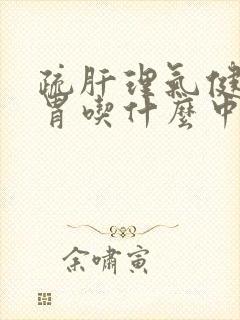 疏肝理氣健
胃喫什麼中
余嘯寅